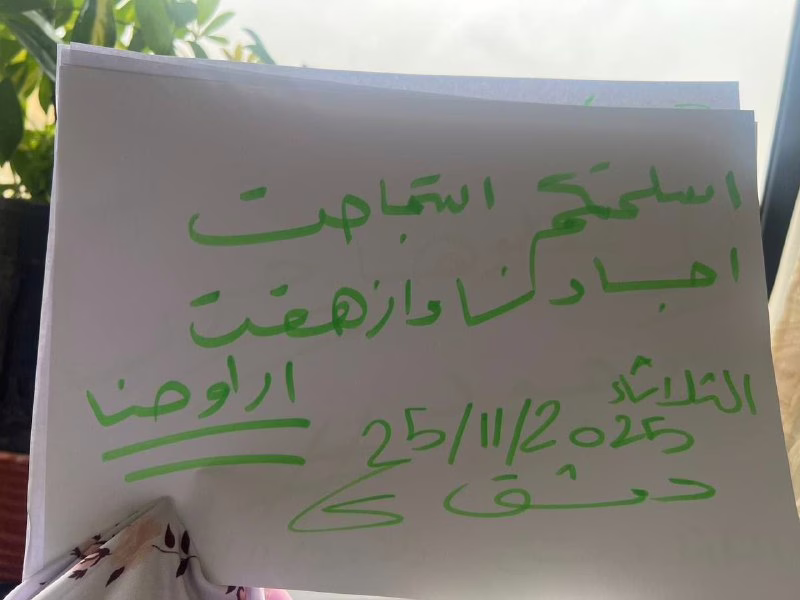 اسلحتكم استباحت
اجسادنا وازهقت
ارواحنا
الثلاثاء
25/11/2025
دمشق